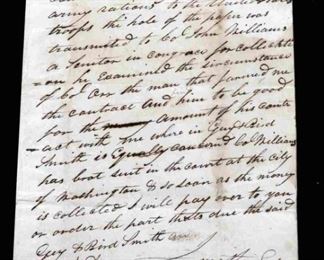 army rations to the United States
troops the hole of the paper was
transmited to Col John Williams
a Senitor in congress for collecti
on he examined the circumstance
of Col Orr the man that farmed me
the contract and him to be good
for the amount of his contr
act with me where in Guy & Bird
Smith is Equaly concerned Col Williams
has brot suit in the court at the city
of Washington & so soon as the money
is collected I will pay over to you
or order the part thats due the said
Guy & Bird Smith